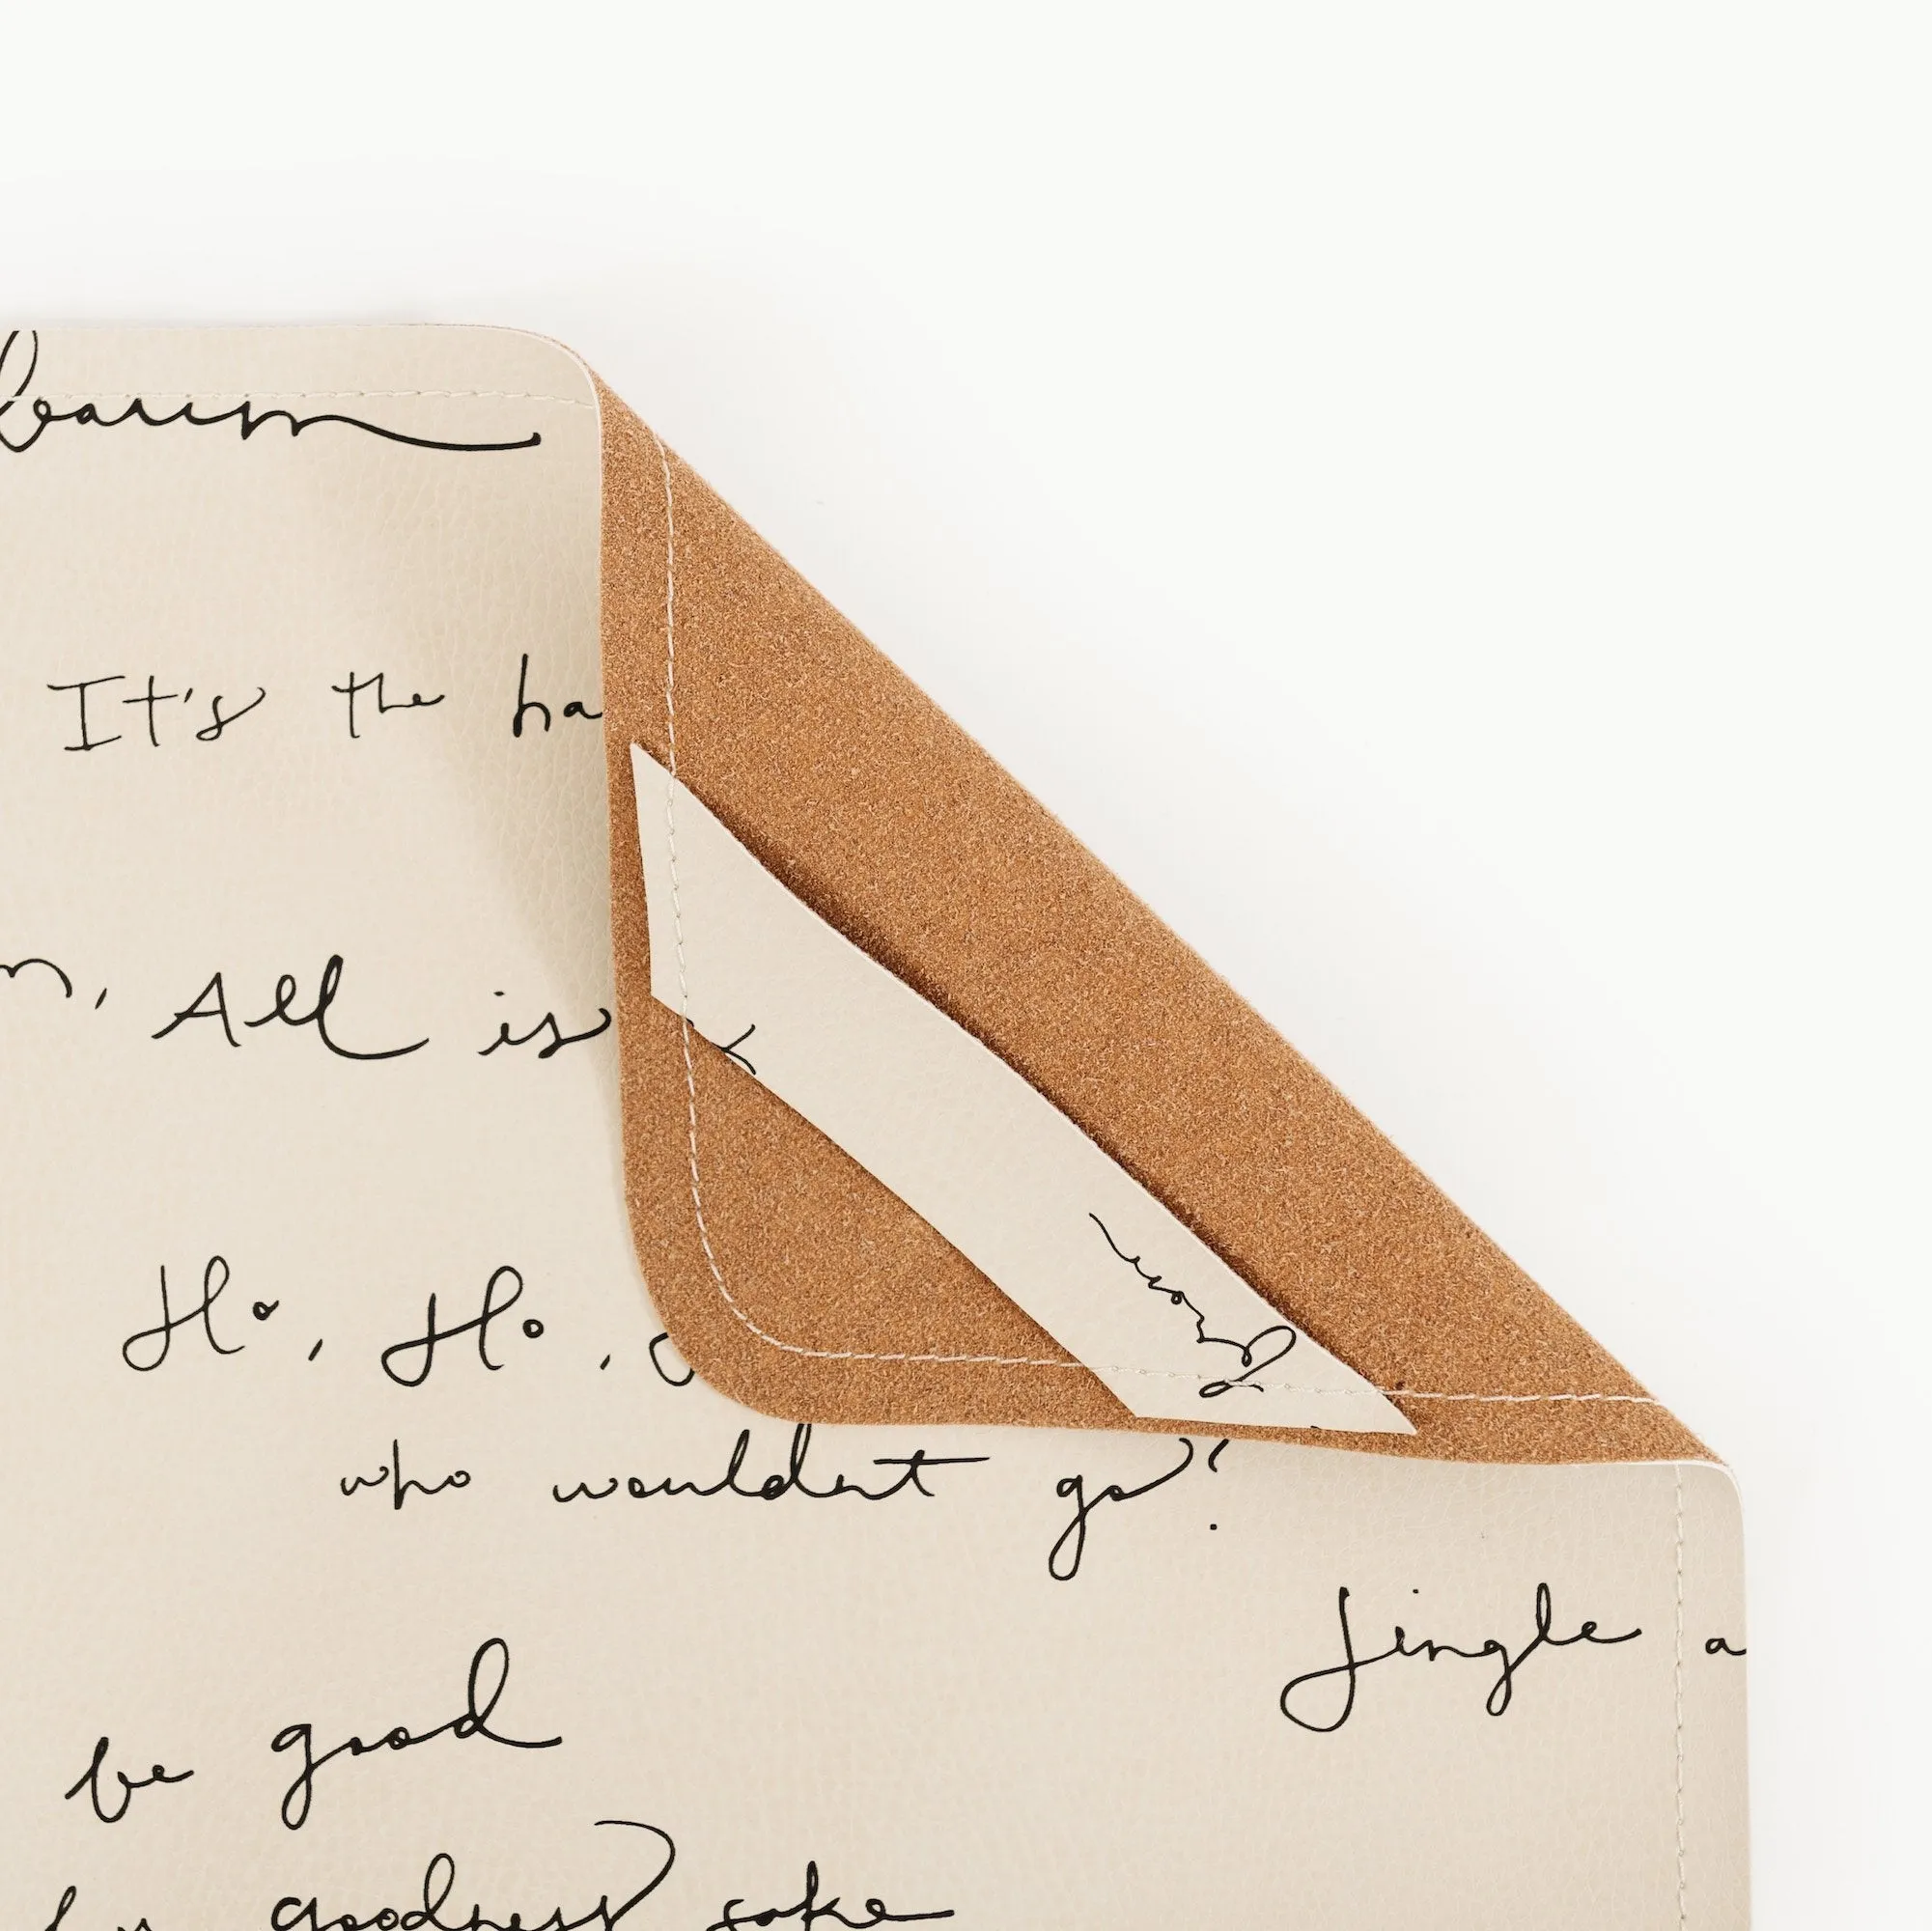 It's the
All is
Ho, Ho,
who wouldn't go?
Jingle a
be good
goodness sake